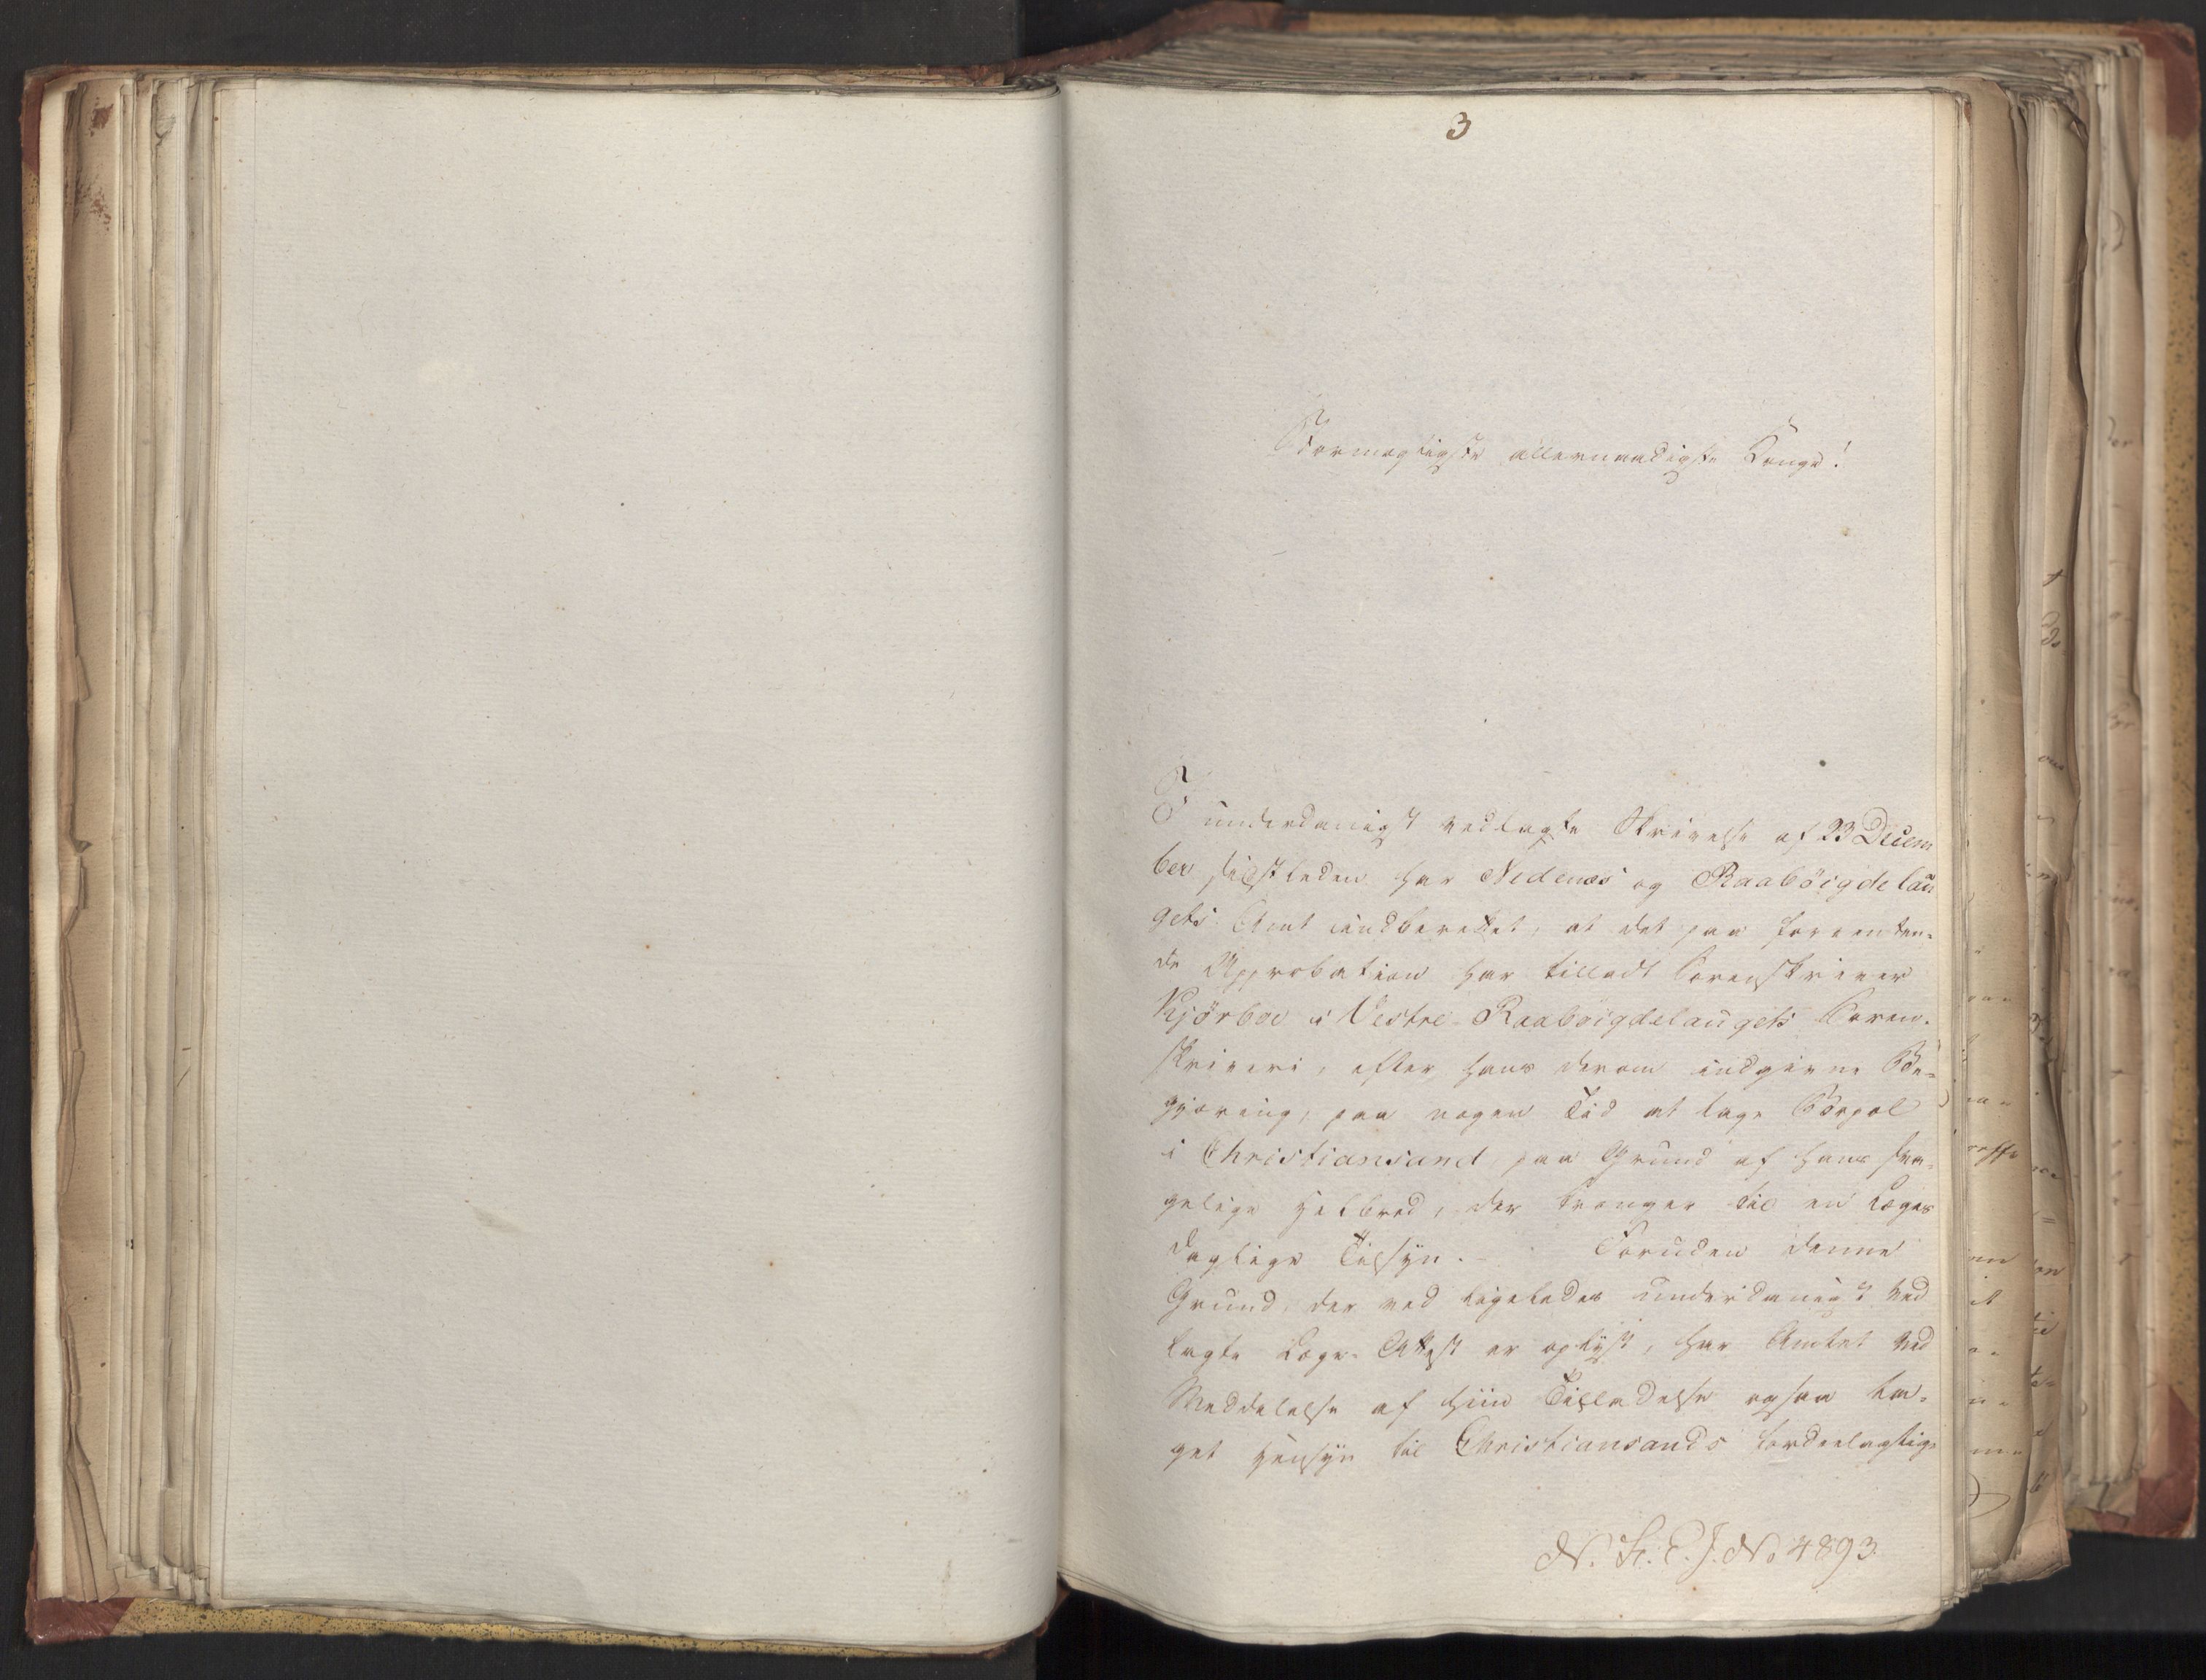 3
Stormægtigste allernaadigste Konge!
I underdanigst vedlagte Skrivelse af 23 Decem
ber sidstleden har Nedenæs og Raabøigdelau
gets Amt indberettet, at det paa forventen-
de Approbation har tilladt Sorenskriver
Kjørboe i Vestre-Raabøigdelaugets Soren-
skriveri, efter hans derom indgivne Be-
gjæring, paa nogen Tid at tage Bopæl
i Christiansand paa Grund af hans sva-
gelige Helbred, der trænger til en Læges
daglige Tilsyn. - Foruden denne
Grund, der ved ligeledes underdanigst ved
lagte Læge-Attest er oplyst, har Amtet ved
Meddelelse af hiin Tilladelse ogsaa ta-
get Hensyn til Christiansands fordeelagtige
N. St. E. J. No 4893.